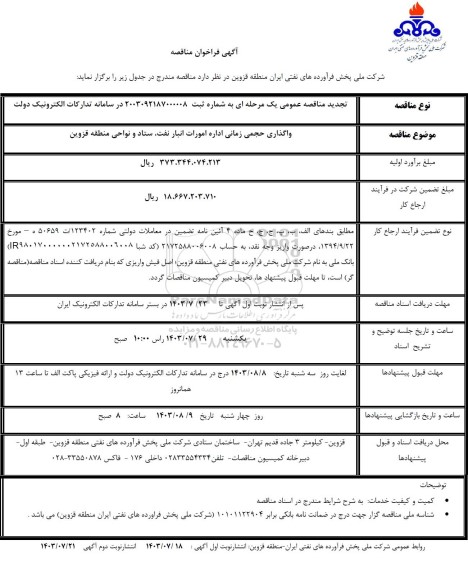 آگهی فراخوان مناقصه
شرکت ملی پخش فرآورده های نفتی ایران منطقه قزوین در نظر دارد مناقصه مندرج در جدول زیر را برگزار نماید:
نوع مناقصه
تجدید مناقصه عمومی یک مرحله ای به شماره ثبت ۲۰۰۳۰۹۲۱۸۷۰۰۰۰۰۸ در سامانه تدارکات الکترونیک دولت
موضوع مناقصه
واگذاری حجمی زمانی اداره امورات انبار نفت، ستاد و نواحی منطقه قزوین
مبلغ برآورد اولیه
۳۷۳.۳۴۴.۰۷۴.۲۱۳ ریال
مبلغ تضمین شرکت در فرآیند
ارجاع کار
۱۸.۶۶۷.۲۰۳.۷۱۰ ریال
نوع تضمین فرآیند ارجاع کار
مطابق بندهای الف، ب، پ، ج، چ، ح ماده ۴ آئین نامه تضمین در معاملات دولتی شماره ۱۲۳۴۰۲/ت ۵۰۶۵۹ ه – مورخ
۱۳۹۴/۹/۲۲، درصورت واریز وجه نقد، به حساب ۲۱۷۲۵۸۸۰۰۶۰۰۸ (کد شبا
بانک ملی به نام شرکت ملی پخش فرآورده های نفتی منطقه قزوین؛ اصل فیش واریزی که بنام دریافت کننده اسناد مناقصه(مناقصه
گر) است، تا مهلت قبول پیشنهاد ها، تحویل دبیر کمیسیون مناقصات گردد.
مهلت دریافت اسناد مناقصه
پس از انتشار نوبت اول آگهی تا ۱۴۰۳/۷/۲۳ در بستر سامانه تدارکات الکترونیک ایران
ساعت و تاریخ جلسه توضیح و
تشریح اسناد
یکشنبه ۱۴۰۳/۰۷/۲۹ راس ۱۰:۰۰ صبح
مهلت قبول پیشنهادها
لغایت روز سه شنبه تاریخ: ۱۴۰۳/۰۸/۸ درج در سامانه تدارکات الکترونیک دولت و ارائه فیزیکی پاکت الف تا ساعت ۱۳
همانروز
ساعت و تاریخ بازگشایی پیشنهادها
روز چهار شنبه تاریخ ۱۴۰۳/۰۸/۹ ساعت: ۸ صبح
محل دریافت اسناد و قبول
پیشنهادها
قزوین- کیلومتر ۳ جاده قدیم تهران- ساختمان ستادی شرکت ملی پخش فرآورده های نفتی منطقه قزوین- طبقه اول-
دبیرخانه کمیسیون مناقصات- تلفن ۰۲۸۳۳۵۵۴۳۳۴ داخلی ۱۷۶ - فاکس ۳۳۵۵۰۸۷۸-۰۲۸
توضیحات
• کمیت و کیفیت خدمات: به شرح شرایط مندرج در اسناد مناقصه
• شناسه ملی مناقصه گزار جهت درج در ضمانت نامه بانکی برابر ۱۰۱۰۱۱۲۲۹۰۴ (شرکت ملی پخش فراورده های نفتی ایران منطقه قزوین) می باشد.
روابط عمومی شرکت ملی پخش فرآورده های نفتی ایران-منطقه قزوین: انتشارنوبت اول آگهی : ۱۴۰۳/۰۷/۱۸ انتشارنوبت دوم آگهی ۱۴۰۳/۰۷/۲۱